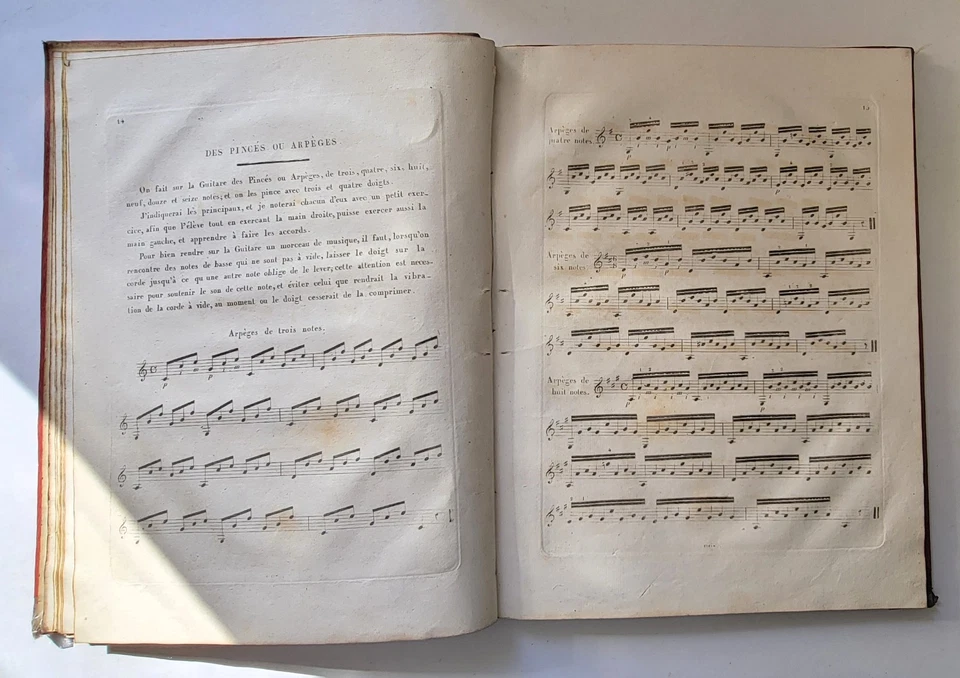 14
DES PINCÉS OU ARPÈGES
On fait sur la Guitare des Pincés ou Arpèges, de trois, quatre, six, huit,
neuf, douze et seize notes; et on les pince avec trois et quatre doigts.
J'indiquerai les principaux, et je noterai chacun d'eux avec un petit exer-
cice, afin que l'élève tout en exercant la main droite, puisse exercer aussi la
main gauche, et apprendre à faire les accords.
Pour bien rendre sur la Guitare un morceau de musique, il faut, lorsqu'on
rencontre des notes de basse qui ne sont pas à vide, laisser le doigt sur la
corde jusqu'à ce qu'une autre note oblige de le lever; cette attention est neces-
saire pour soutenir le son de cette note, et éviter celui que rendrait la vibra-
tion de la corde à vide, au moment ou le doigt cesserait de la comprimer.
Arpèges de trois notes.
p
p
15
Arpèges de
quatre notes.
Arpèges de
six notes.
Arpèges de
huit notes.